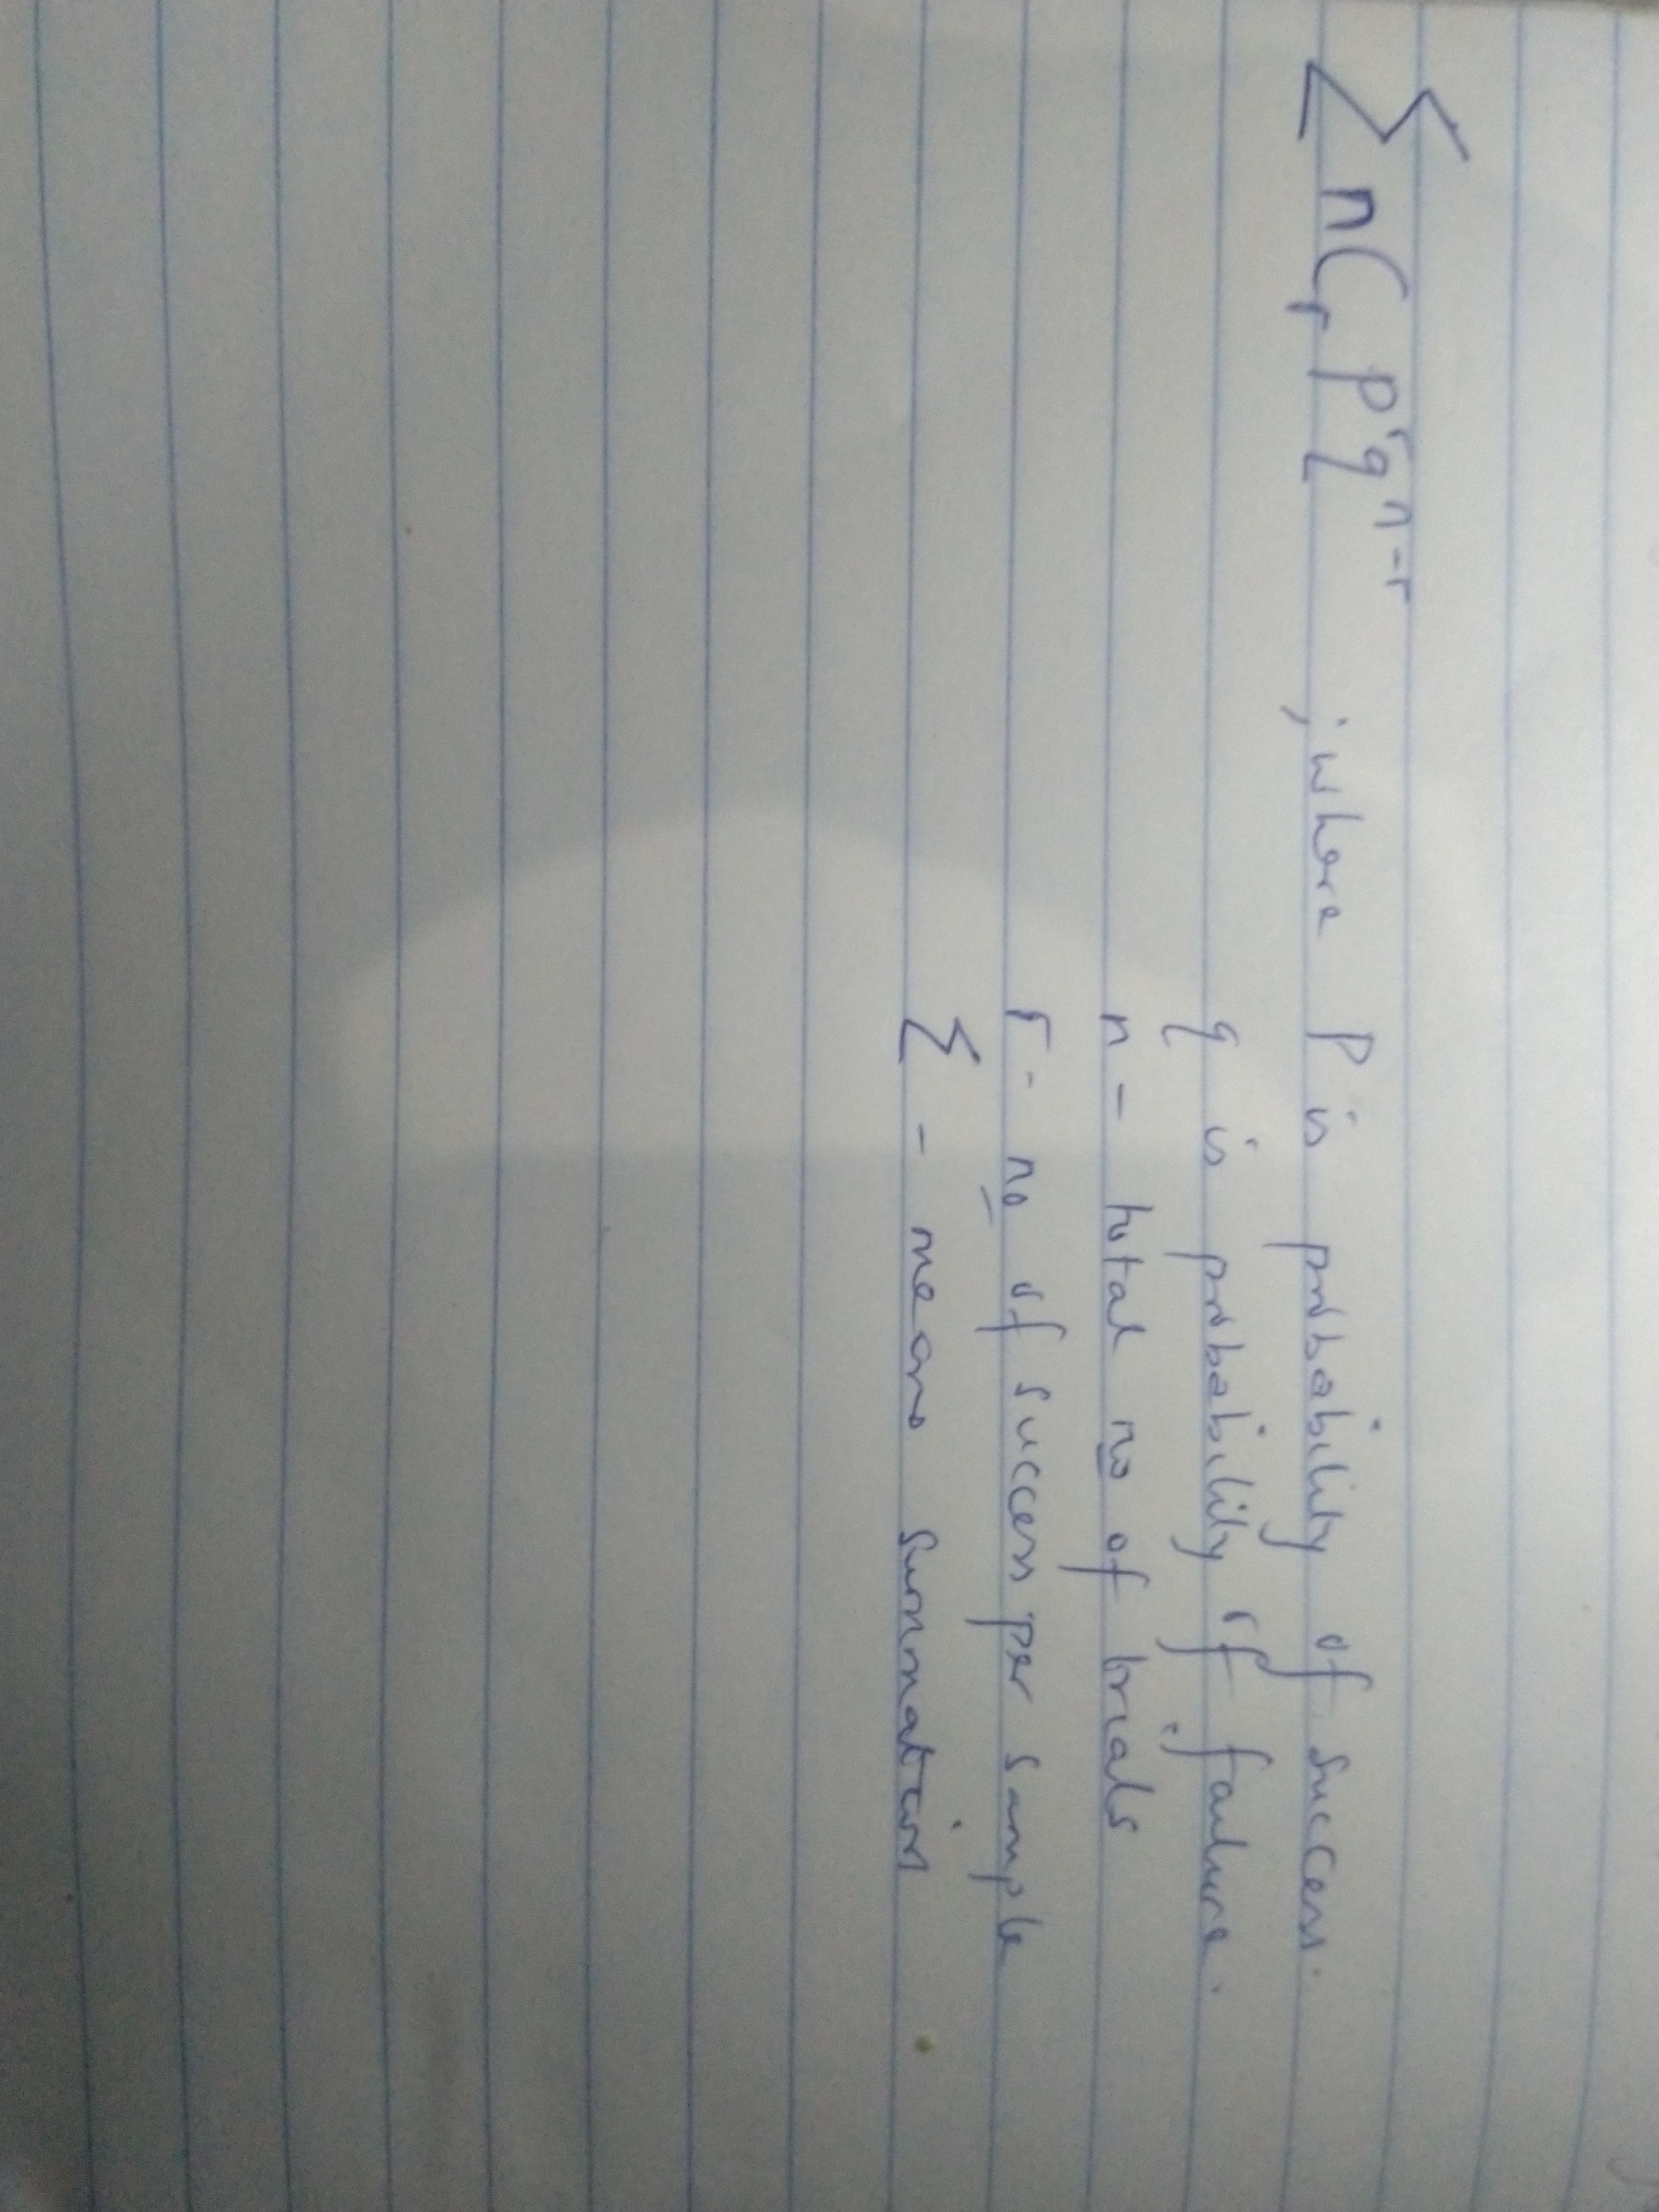 ∑ nCr pʳqⁿ⁻ʳ ; where P is probability of success.
q is probability of failure.
n - total no of trials
r - no of success per sample
∑ - means summation